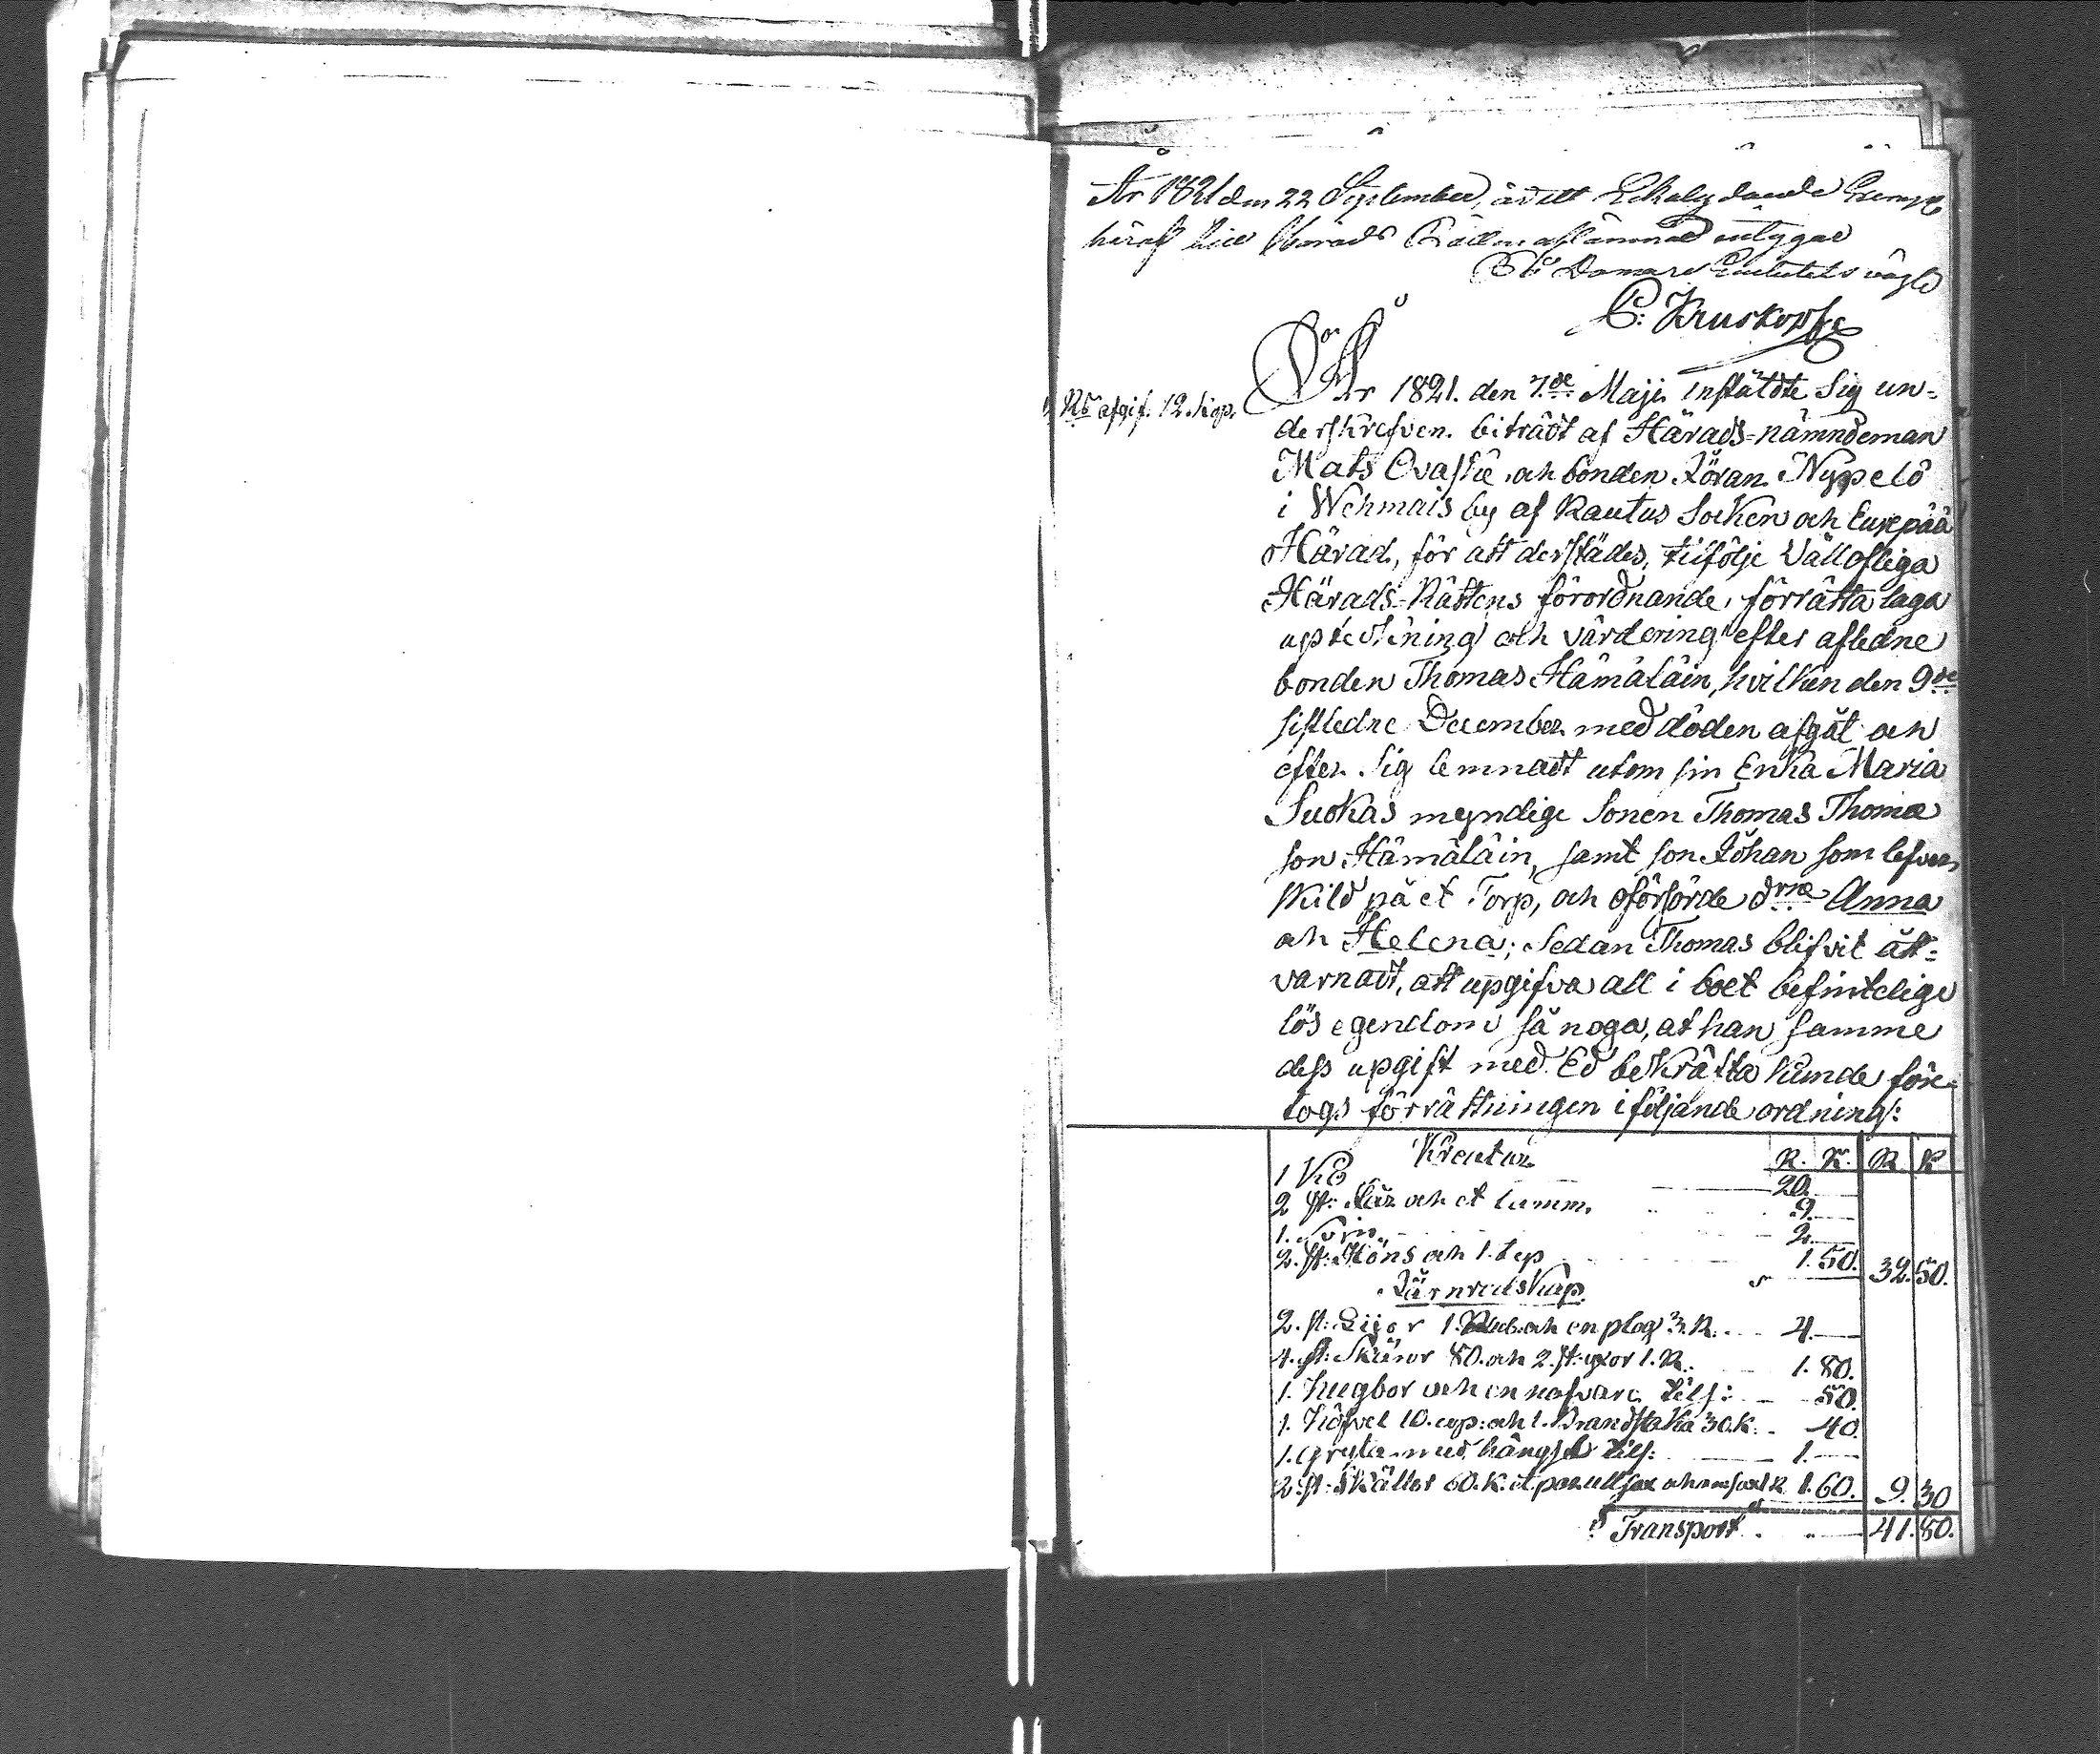 År 1821 den 22 September, är ett Lika lydande Exempl.
häraf till Härads Rätten aflämnad intygar
På Domare Embetets vägd
C: Kruskopf
N:o afgif. 12. kop.
År 1821. den 7.de Maji instäldte Sig un-
derskrefven. biträdt af Härads-nämndeman
Mats Ovaska, och bonden Jöran Nypelö
i Wehmais by af Rautus Socken och Eurepää
Härad, för att derstädes, tilfölje Vällofliga
Härads-Rättens förordnande, förrätta laga
upteckning och värdering efter afledne
bonden Thomas Hämäläin, hvilken den 9de
sistledne December med döden afgåt och
efter Sig lemnadt utom sin Enka Maria
Suokas myndige Sonen Thomas Thomæ
son Hämäläin, samt son Johan som lefver
skild på et Torp, och oförsörde d:rne Anna
och Helena; Sedan Thomas blifvit åt-
varnadt, att upgifva all i boet befintelige
lös egendom så noga, at han samme
dess upgift med Ed bekräfta kunde före-
togs förrättningen i följande ordning:
Kreatur R. K. R K
1 Ko 20.
2 st: Får och et lamm. 9.
1. Svin 2.
2. st: Höns och 1. tup 1. 50. 32. 50.
Järnredskap
2. st: Liior 1. Rub. och en plog 3. R. 4.
4. st: Skäror 80. och 2. st: yxor 1. R. 1. 80.
1. hugbor och en nafvare tils: 50.
1. höfvel 10. cop: och 1. Brandstaka 30. K. 40.
1. gryta med hängsel tils: 1.
2. st: Skällor 60. K. et par ullsax 1 R 1. 60. 9. 30
Transport 41. 80.